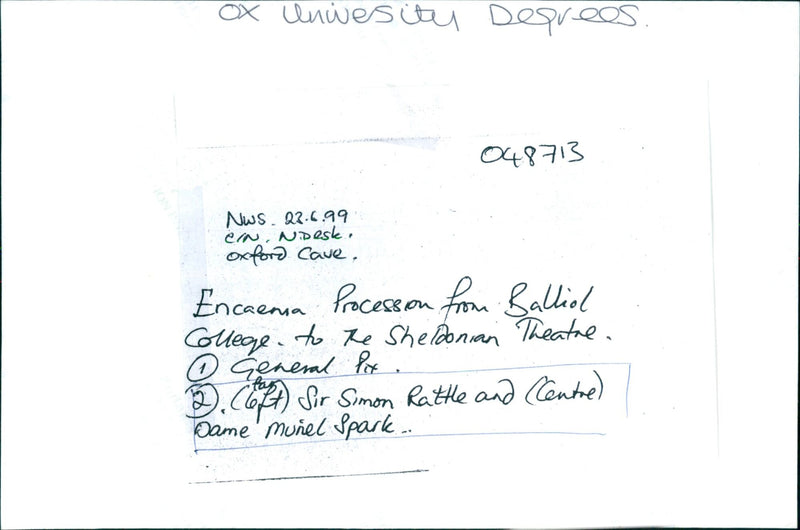 OX University Degrees.
048713
NWS. 23.6.99
C/N. NDesk.
Oxford Cave.
Encaenia Procession from Balliol
College. to the Sheldonian Theatre.
① General Pix.
far
②. (left) Sir Simon Rattle and (Centre)
Dame Muriel Spark..